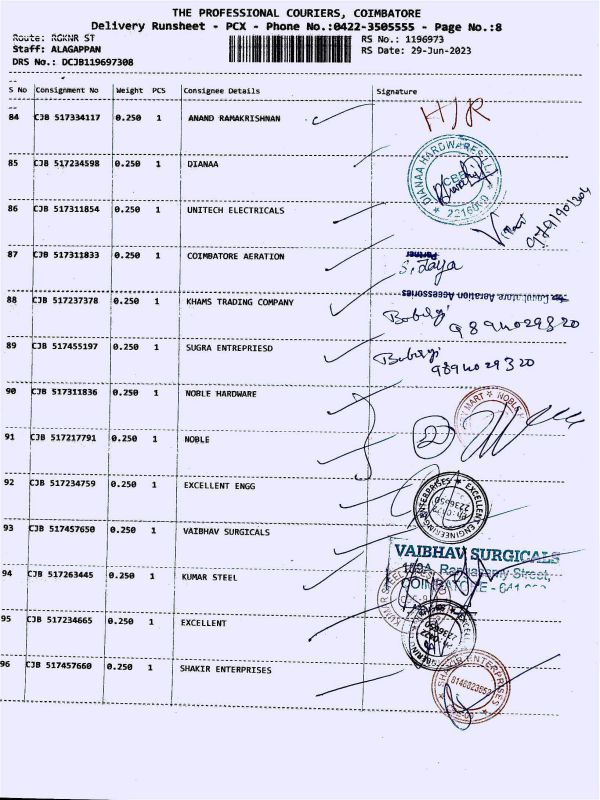 THE PROFESSIONAL COURIERS, COIMBATORE
Delivery Runsheet - PCX - Phone No.:0422-3505555 - Page No.:8
Route: RGKNR ST RS No.: 1196973
Staff: ALAGAPPAN RS Date: 29-Jun-2023
DRS No.: DCJB119697308
S No Consignment No Weight PCS Consignee Details Signature
84 CJB 517334117 0.250 1 ANAND RAMAKRISHNAN HJR
85 CJB 517234598 0.250 1 DIANAA
DIANAA HARDWARES
CBE
2216069
86 CJB 517311854 0.250 1 UNITECH ELECTRICALS
87 CJB 517311833 0.250 1 COIMBATORE AERATION
Partner
S. Jaya
Coimbatore Aeration Accessories
88 CJB 517237378 0.250 1 KHAMS TRADING COMPANY
9894029820
89 CJB 517455197 0.250 1 SUGRA ENTREPRIESD
9894029320
90 CJB 517311836 0.250 1 NOBLE HARDWARE
MART NOBLE
91 CJB 517217791 0.250 1 NOBLE 2
92 CJB 517234759 0.250 1 EXCELLENT ENGG
EXCELLENT ENGINEERING ENTERPRISES
93 CJB 517457650 0.250 1 VAIBHAV SURGICALS
VAIBHAV SURGICALS
Street,
COIMBATORE - 641
94 CJB 517263445 0.250 1 KUMAR STEEL
KUMAR STEEL
95 CJB 517234665 0.250 1 EXCELLENT
96 CJB 517457660 0.250 1 SHAKIR ENTERPRISES
SHAKIR ENTERPRISES